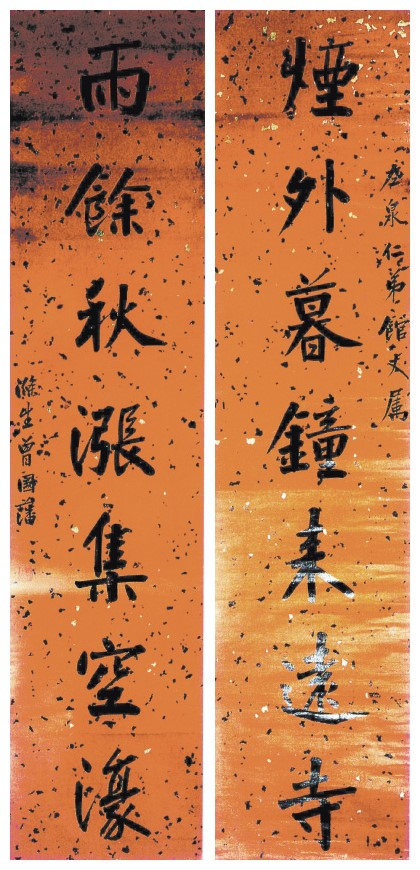 泉仁弟館丈属
煙外暮鐘來遠寺
雨餘秋漲集空濠
滌生曾國藩